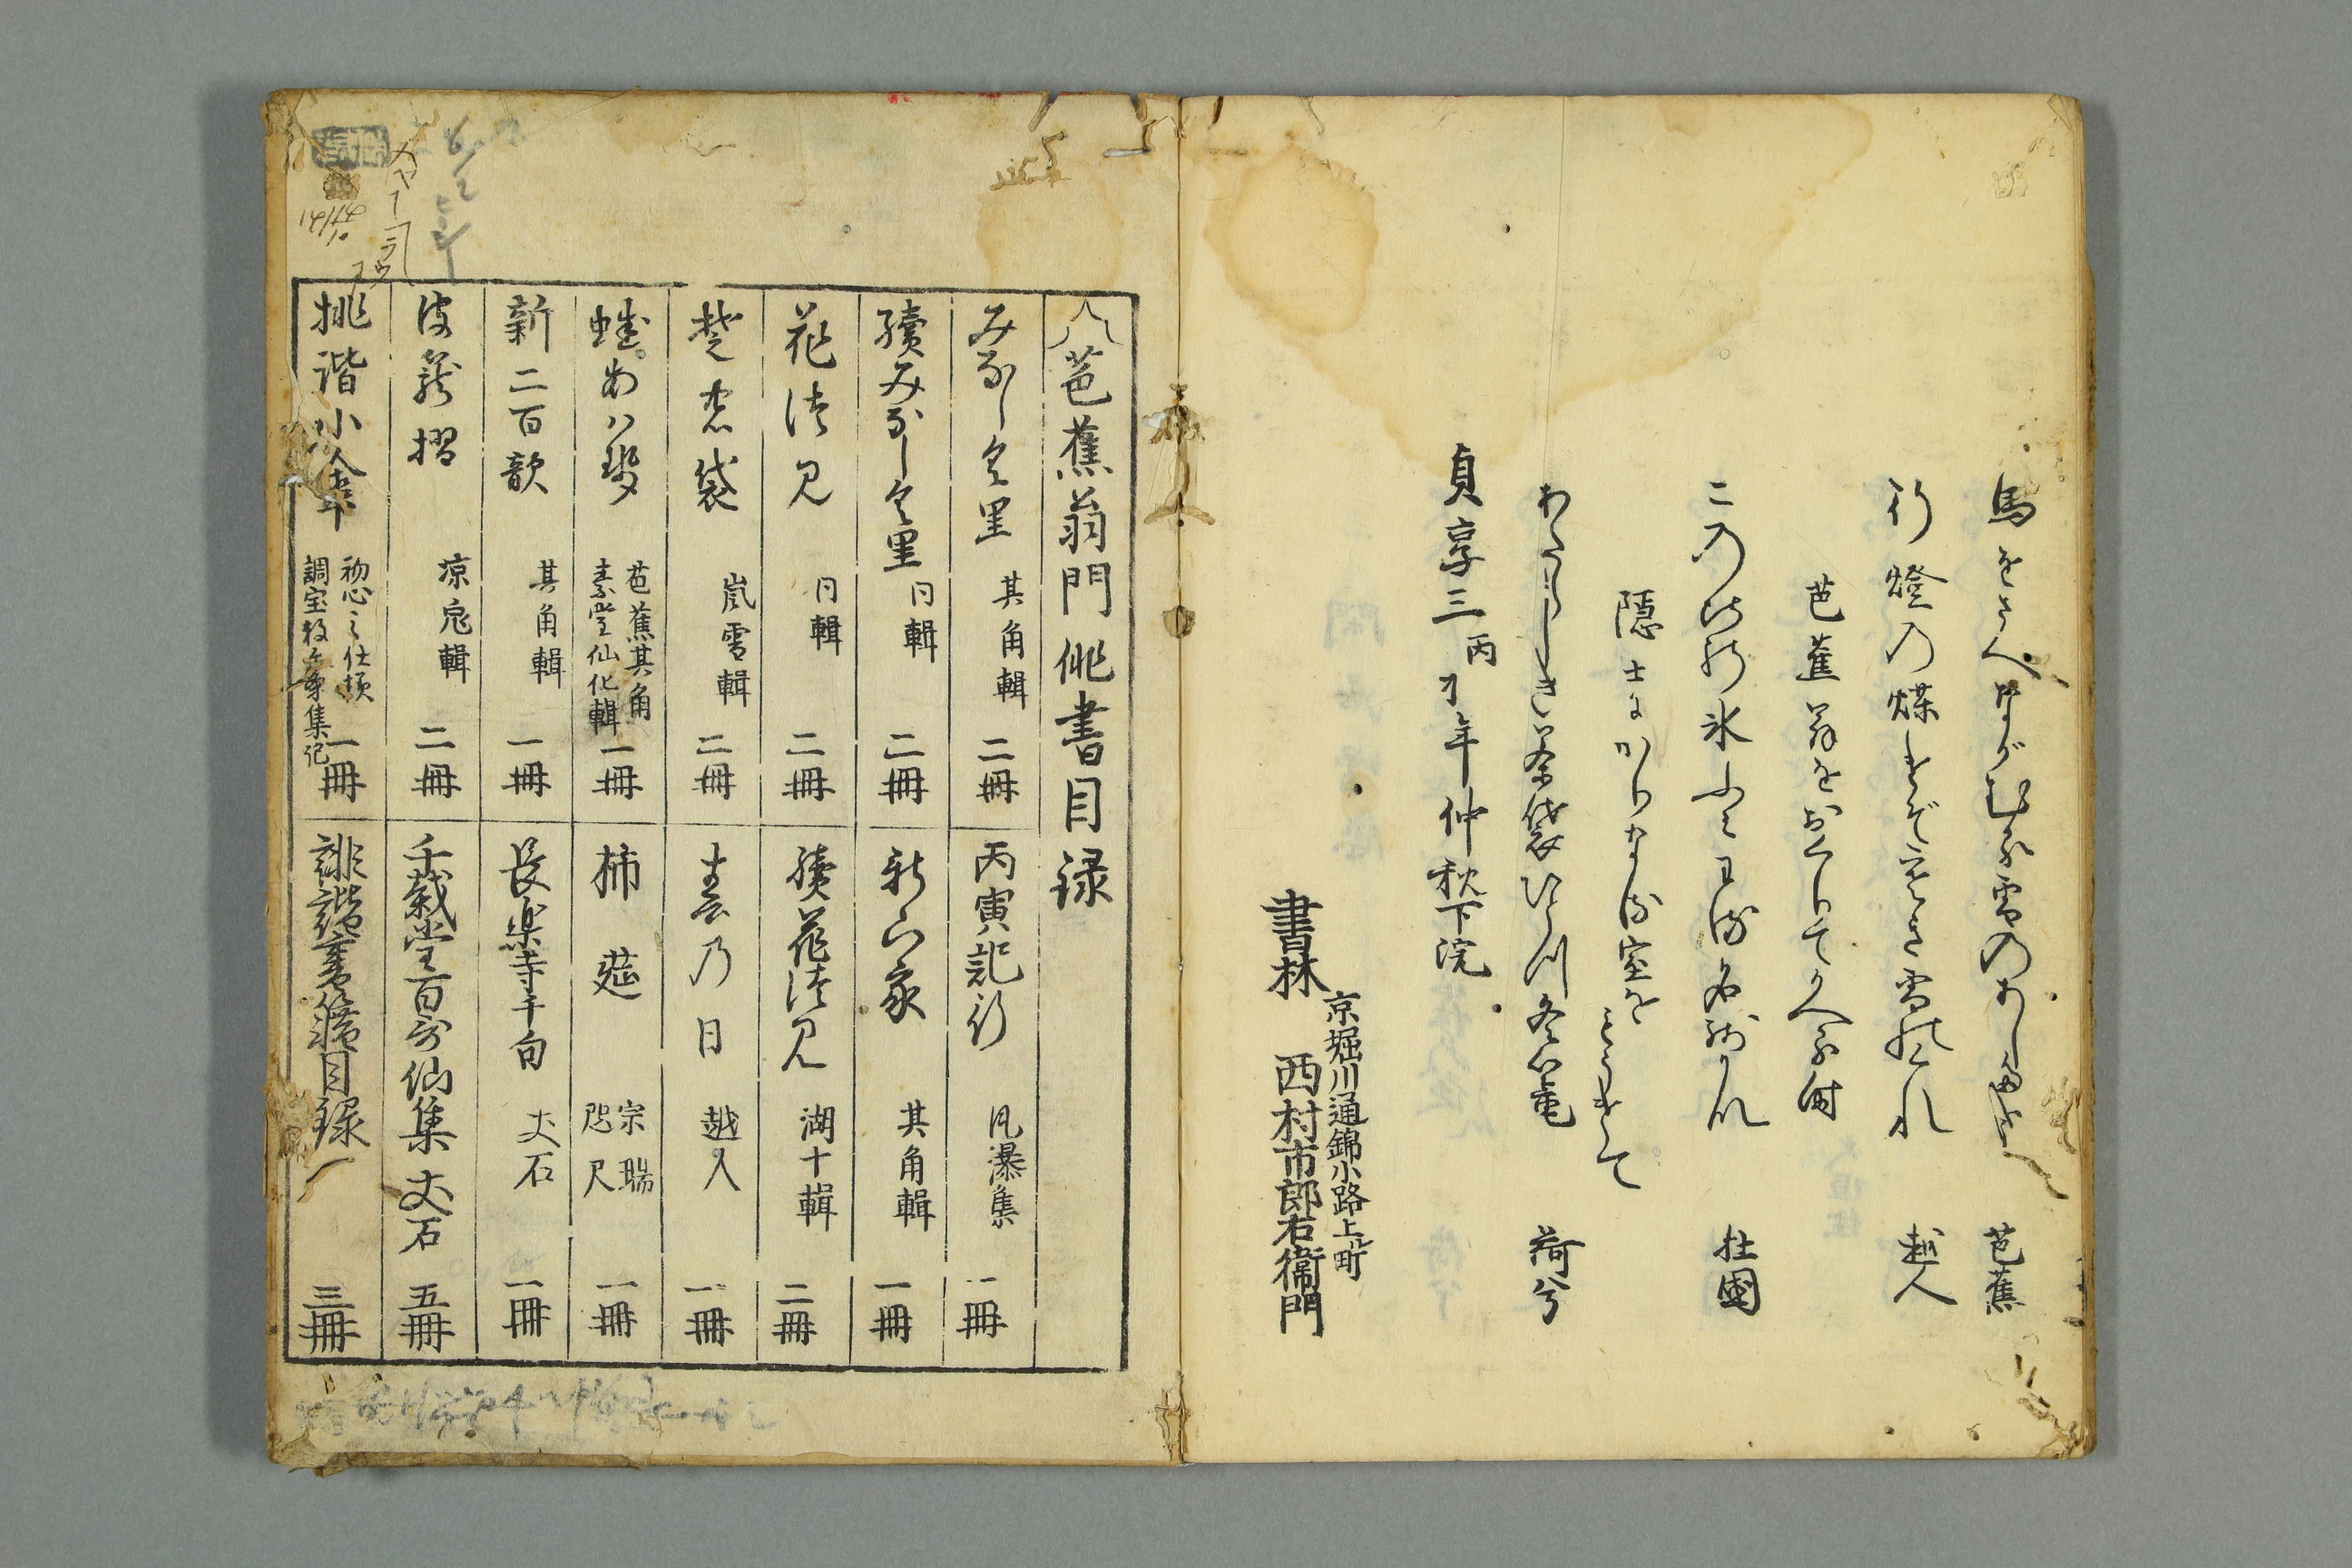 馬をさへながむる雪のあした哉 芭蕉
行燈の煤けぞ寒き雪のくれ 越人
芭蕉翁をおくりてかへる時
この比の氷ふみわる名残かな 杜國
隠士にかりなる室をもうけて
あたらしき茶袋ひとつ冬籠 荷兮
貞享三丙寅年仲秋下浣
京堀川通錦小路上ル町
書林 西村市郎右衛門
芭蕉翁門俳書目録
みなしくり 其角輯 二冊
續みなしくり 同輯 二冊
花摘 同輯 二冊
其袋 嵐雪輯 二冊
蛙あはせ 芭蕉其角素堂仙化輯 一冊
新二百韻 其角輯 一冊
涼菟輯 二冊
誹諧小傘 初心之仕様 一冊
丙寅記行 風瀑集 一冊
新山家 其角輯 一冊
續花摘 湖十輯 二冊
春乃日 越人 一冊
柿莚 宗瑞 咫尺 一冊
長楽寺千句 丈石 一冊
千載堂百歌仙集 丈石 五冊
誹諧書籍目録 三冊